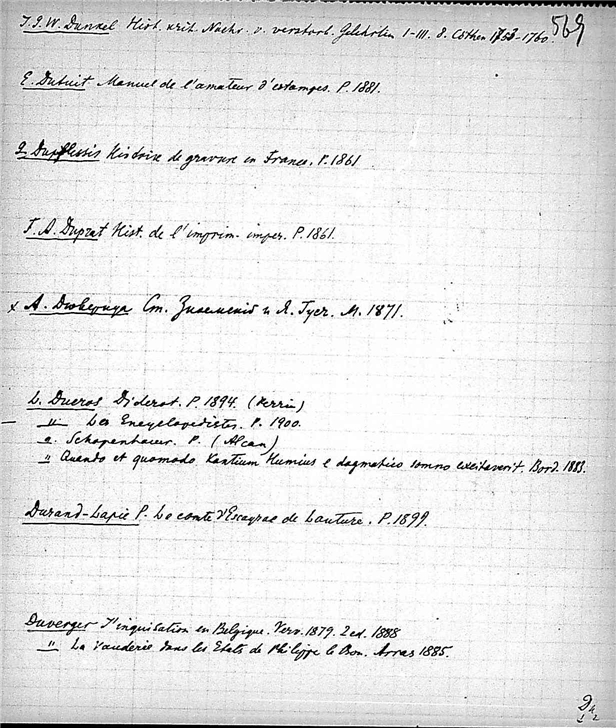 569
J. G. W. Dunkel Hist. krit. Nachr. v. verstorb. Gelehrten I-III. 8. Cöthen 1753-1760.
E. Dutuit Manuel de l'amateur d'estampes. P. 1881.
G. Duplessis Histoire de gravure en France. P. 1861
F. A. Duprat Hist. de l'imprim. imper. P. 1861.
x А. Дювернуа Ст. Зноемскій и Я. Гусъ. М. 1871.
L. Ducros Diderot. P. 1894. (Perrin)
— " Les Encyclopedistes. P. 1900.
" Schopenhauer. P. (Alcan)
" Quando et quomodo Kantium Humius e dogmatico somno excitaverit. Bord. 1883.
Durand-Lapie P. Le comte d'Escayrac de Lauture. P. 1899.
Duverger L'inquisation en Belgique. Verv. 1879. 2 ed. 1888
" La Vauderie dans les Etats de Philippe le Bon. Arras 1885.